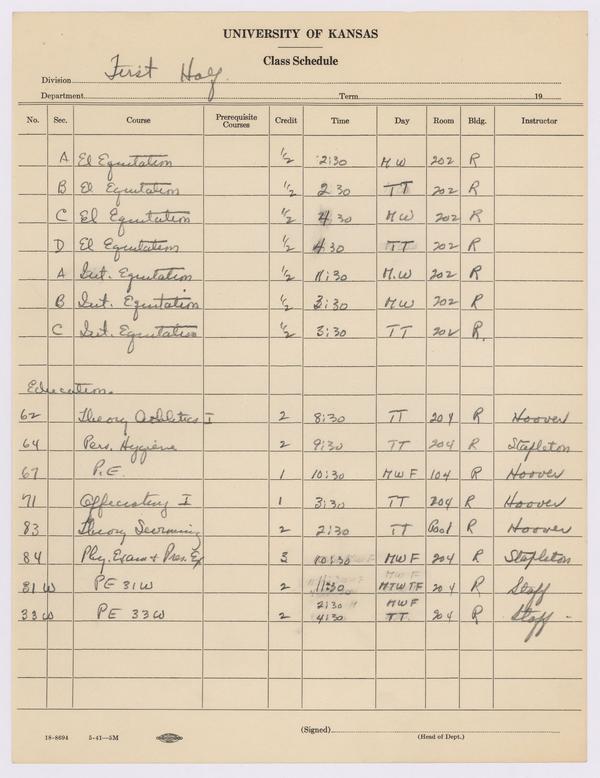 UNIVERSITY OF KANSAS
Class Schedule
Division First Half
Department Term 19
No. Sec. Course Prerequisite Courses Credit Time Day Room Bldg. Instructor
A El Equitation 1/2 2:30 MW 202 R
B El Equitation 1/2 2 30 TT 202 R
C El Equitation 1/2 4 30 MW 202 R
D El Equitation 1/2 4 30 TT 202 R
A Int. Equitation 1/2 11:30 M.W 202 R
B Int. Equitation 1/2 3:30 MW 202 R
C Int. Equitation 1/2 3:30 TT 202 R.
Education
62 Theory Athletics I 2 8:30 TT 204 R Hoover
64 Pers. Hygiene 2 9:30 TT 204 R Stapleton
67 P.E. 1 10:30 MWF 104 R Hoover
71 Officiating I 1 3:30 TT 204 R Hoover
83 Theory Swimming 2 2:30 TT Pool R Hoover
84 Phy. Exam + Pres. Ex 3 10:30 MWF 204 R Stapleton
31W PE 31W 2 11:30 MTWTF 204 R Staff
2:30 MWF
33W PE 33W 2 4:30 TT 204 R Staff
(Signed)
(Head of Dept.)
18-8694 5-41—5M